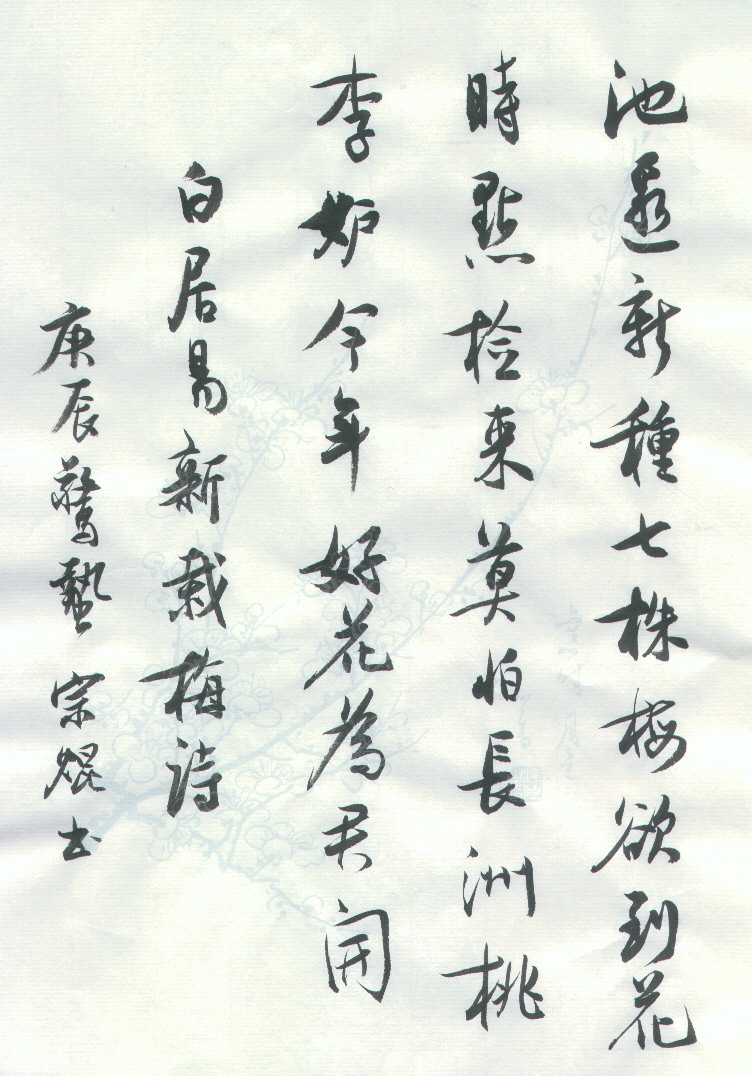 池邊新種七株梅欲到花
時點检来莫怕長洲桃
李妒今年好花為君開
白居易新栽梅诗
庚辰驚蟄 宗焜书